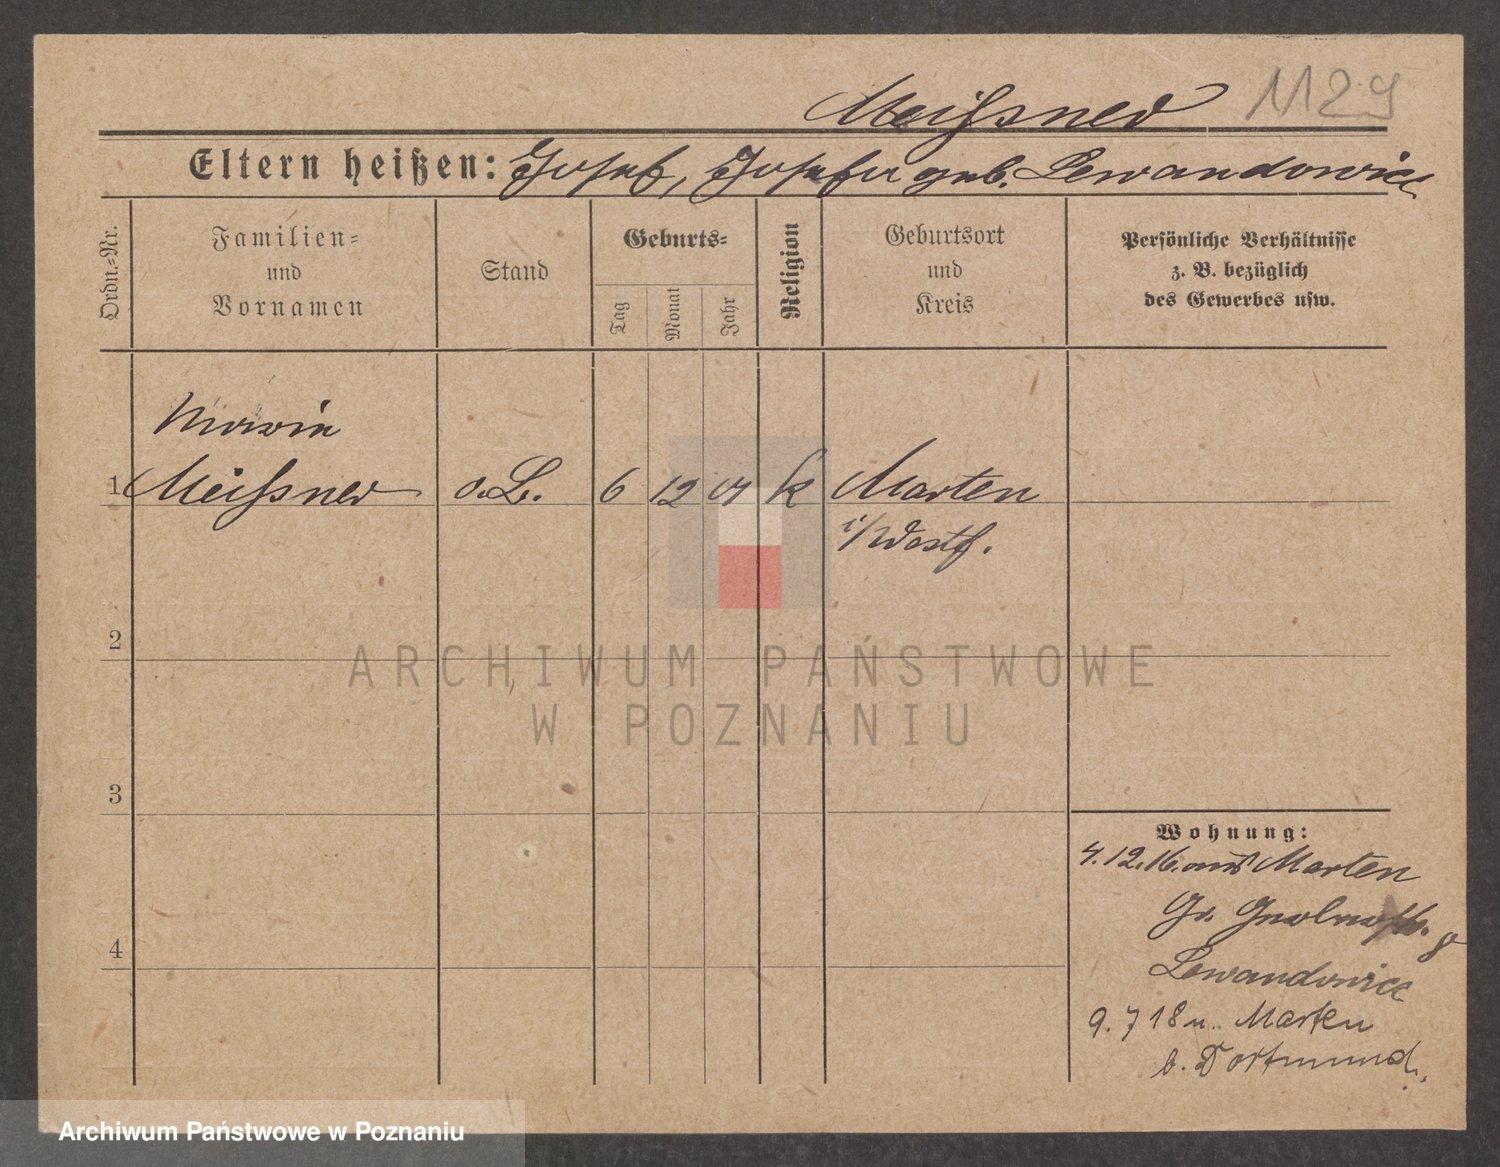 Meißner 1129
Eltern heißen: Josef, Josefa geb. Lewandowicz
Ordn.-Nr.
Familien-
und
Vornamen
Stand
Geburts-
Tag
Monat
Jahr
Religion
Geburtsort
und
Kreis
Persönliche Verhältnisse
z. B. bezüglich
des Gewerbes usw.
Maria
1 Meißner o.B. 6 12 01 k Marten
i/Westf.
2
3
4
Wohnung:
4.12.16. aus Marten
Gr.
Lewandowicz
9.7 18 n. Marten
b. Dortmund.
ARCHIWUM PAŃSTWOWE
W POZNANIU
Archiwum Państwowe w Poznaniu